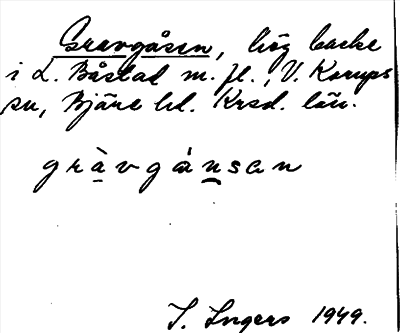 Gravgåsen, hög backe
i L. Båstad m. fl., V. Karups
sn, Bjäre hd. Krsd. län.
gràvgánsan
I. Ingers 1949.